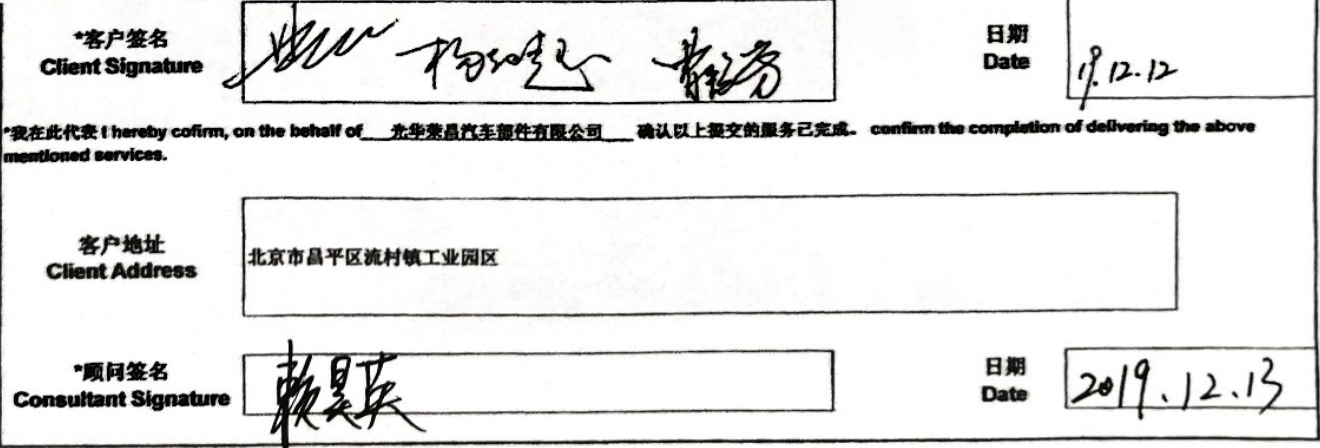 *客户签名
Client Signature
日期
Date
19.12.12
*我在此代表 I hereby cofirm, on the behalf of 光华荣昌汽车部件有限公司 确认以上提交的服务已完成。 confirm the completion of delivering the above
mentioned services.
客户地址
Client Address
北京市昌平区流村镇工业园区
*顾问签名
Consultant Signature
赖昊英
日期
Date
2019.12.13